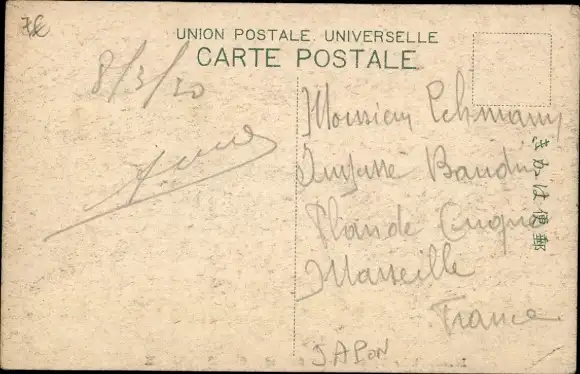 7€
UNION POSTALE UNIVERSELLE
CARTE POSTALE
8/3/20
Monsieur Lehmann
Impasse Baudin
Plan de
Marseille
France
きかは便郵
JAPON